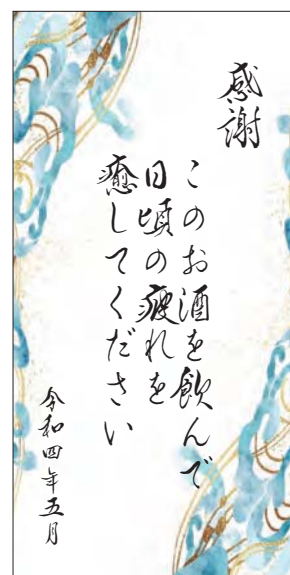 感謝
このお酒を飲んで
日頃の疲れを
癒してください
令和四年五月